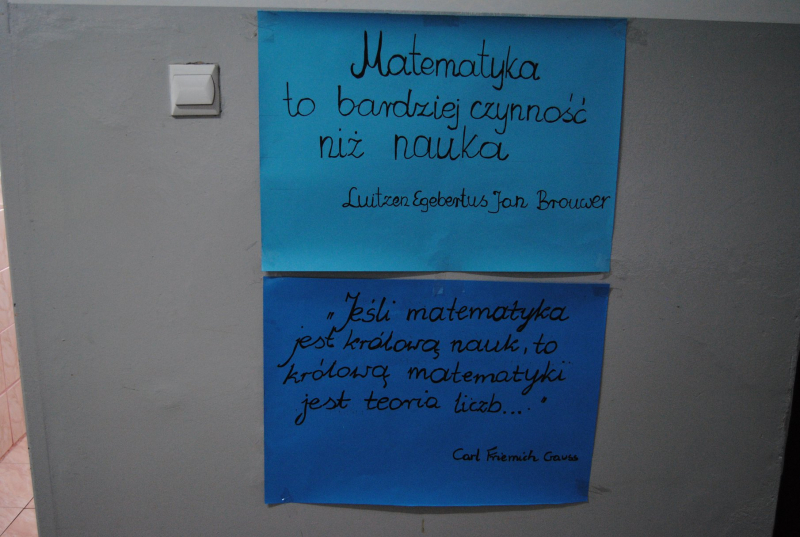 Matematyka
to bardziej czynność
niż nauka
Luitzen Egebertus Jan Brouwer
„Jeśli matematyka
jest królową nauk, to
królową matematyki
jest teoria liczb...."
Carl Friemich Gauss